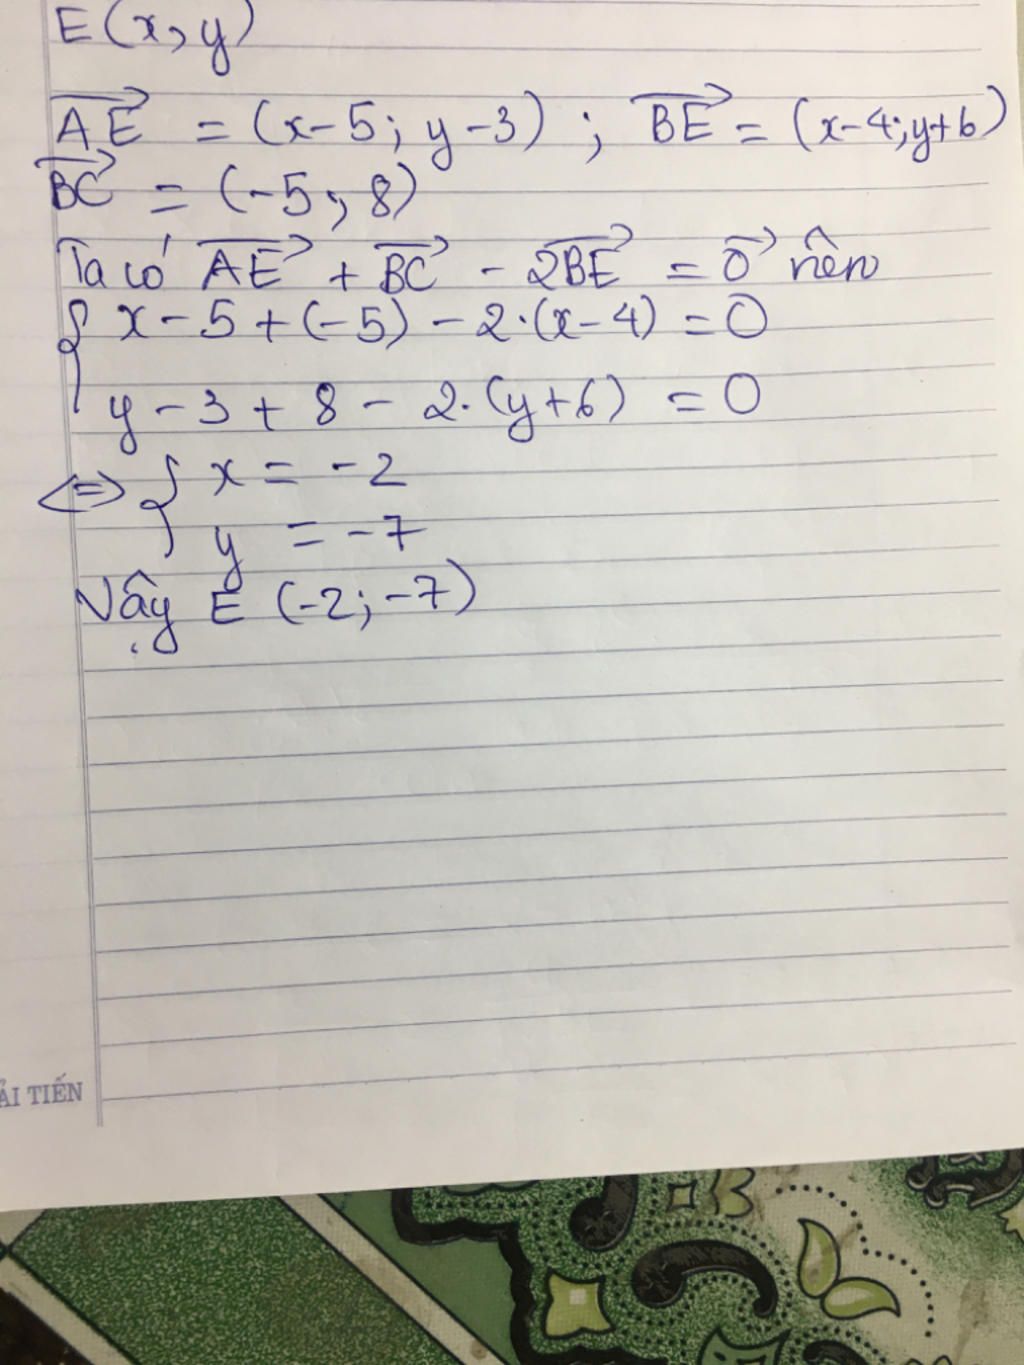 E(x, y)
AE = (x-5; y-3) ; BE = (x-4; y+6)
BC = (-5; 8)
Ta có AE + BC - 2BE = 0 nên
{ x - 5 + (-5) - 2.(x-4) = 0
y - 3 + 8 - 2.(y+6) = 0
<=> { x = -2
y = -7
Vậy E (-2; -7)
ẢI TIẾN